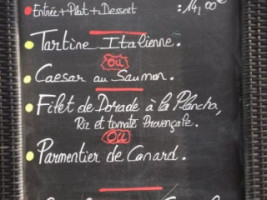 Entrée + Plat + Dessert : 14,00€
Tartine Italienne.
ou
Caesar au Saumon.
Filet de Dorade à la Plancha,
Riz et tomate Provençale.
Ou
Parmentier de Canard.